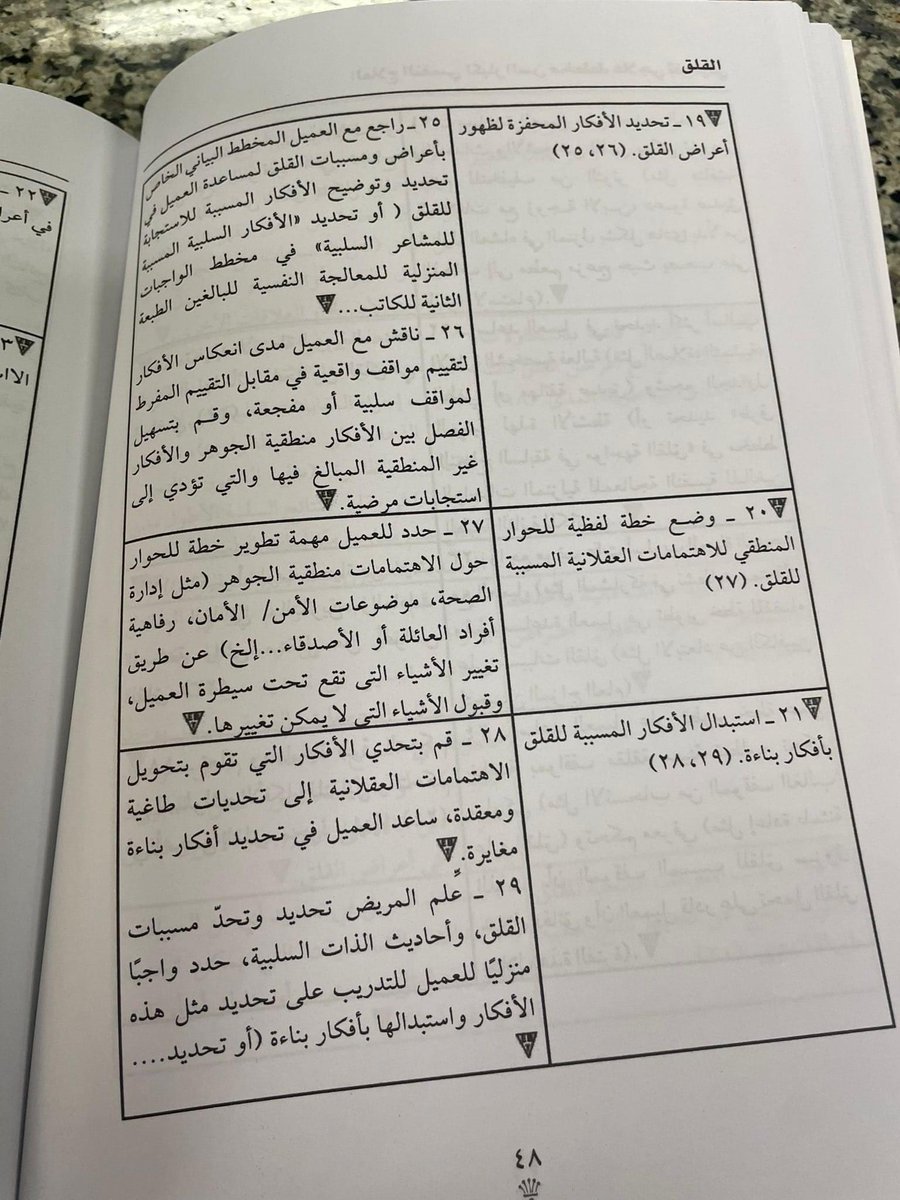 القلق
١٩ ـ تحديد الأفكار المحفزة لظهور
أعراض القلق. (٢٥،٢٦)
٢٥ ـ راجع مع العميل المخطط البياني الخاص
بأعراض ومسببات القلق لمساعدة العميل في
تحديد وتوضيح الأفكار المسببة للاستجابة
للقلق ( أو تحديد «الأفكار السلبية المسببة
للمشاعر السلبية» في مخطط الواجبات
المنزلية للمعالجة النفسية للبالغين الطبعة
الثانية للكاتب...
٢٦ ـ ناقش مع العميل مدى انعكاس الأفكار
لتقييم مواقف واقعية في مقابل التقييم المفرط
لمواقف سلبية أو مفجعة، وقم بتسهيل
الفصل بين الأفكار منطقية الجوهر والأفكار
غير المنطقية المبالغ فيها والتي تؤدي إلى
استجابات مرضية.
٢٠ ـ وضع خطة لفظية للحوار
المنطقي للاهتمامات العقلانية المسببة
للقلق. (٢٧)
٢٧ ـ حدد للعميل مهمة تطوير خطة للحوار
حول الاهتمامات منطقية الجوهر (مثل إدارة
الصحة، موضوعات الأمن/ الأمان، رفاهية
أفراد العائلة أو الأصدقاء...إلخ) عن طريق
تغيير الأشياء التى تقع تحت سيطرة العميل،
وقبول الأشياء التى لا يمكن تغييرها.
٢١ ـ استبدال الأفكار المسببة للقلق
بأفكار بناءة. (٢٨،٢٩)
٢٨ ـ قم بتحدي الأفكار التي تقوم بتحويل
الاهتمامات العقلانية إلى تحديات طاغية
ومعقدة، ساعد العميل في تحديد أفكار بناءة
مغايرة.
٢٩ ـ علِّم المريض تحديد وتحدّ مسببات
القلق، وأحاديث الذات السلبية، حدد واجبًا
منزليًا للعميل للتدريب على تحديد مثل هذه
الأفكار واستبدالها بأفكار بناءة (أو تحديد....
٤٨
٢٢ ـ
في أعرا